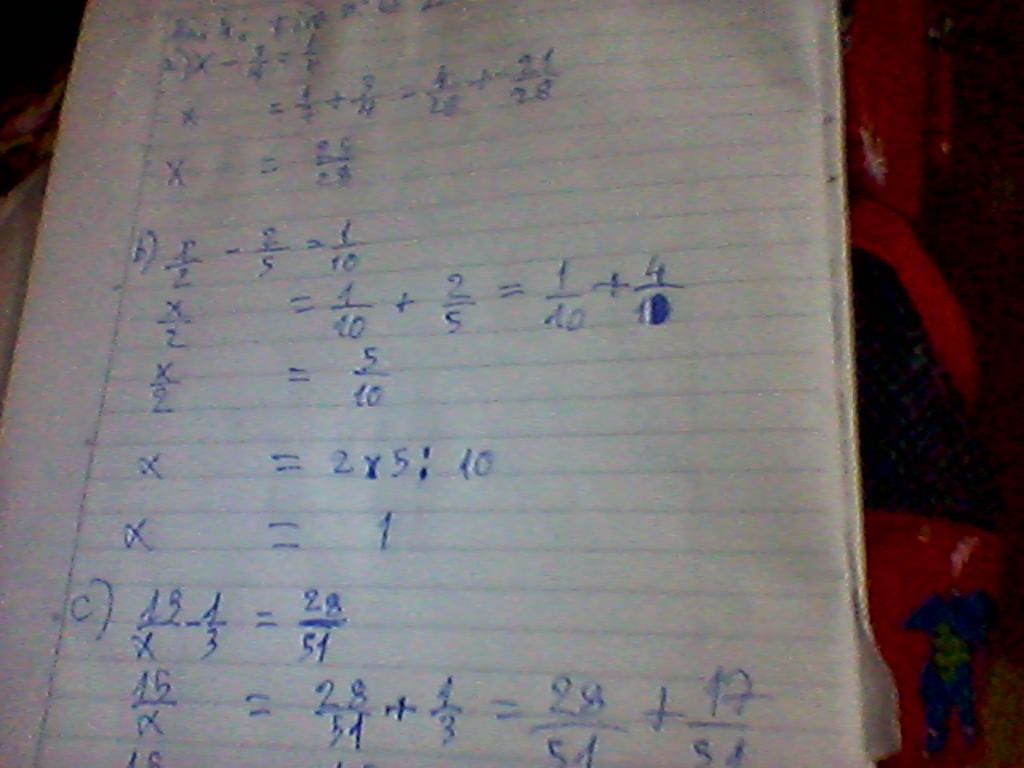 a) x - 3/4 = 1/7
x = 1/7 + 3/4 = 4/28 + 21/28
x = 25/28
b) x/2 - 2/5 = 1/10
x/2 = 1/10 + 2/5 = 1/10 + 4/10
x/2 = 5/10
x = 2 x 5 : 10
x = 1
c) 15/x - 1/3 = 28/51
15/x = 28/51 + 1/3 = 28/51 + 17/51